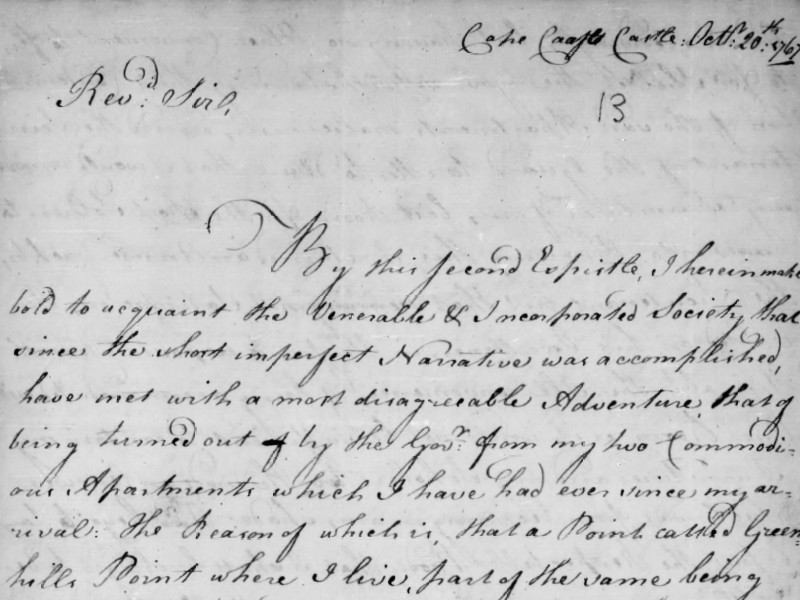 Cape Coast Castle: Octr. 20th: 1767
Revd: Sir,
13
By this second Expistle, I herein make
bold to acquaint the Venerable & Incorporated Society, that
since the short imperfect Narrative was accomplished,
have met with a most disagreeable Adventure that of
being turned out by the Govr. from my two Commodi-
ous Apartments which I have had ever since my ar-
rival: the Reason of which is, that a Point called Green
hills Point where I live, part of the same being